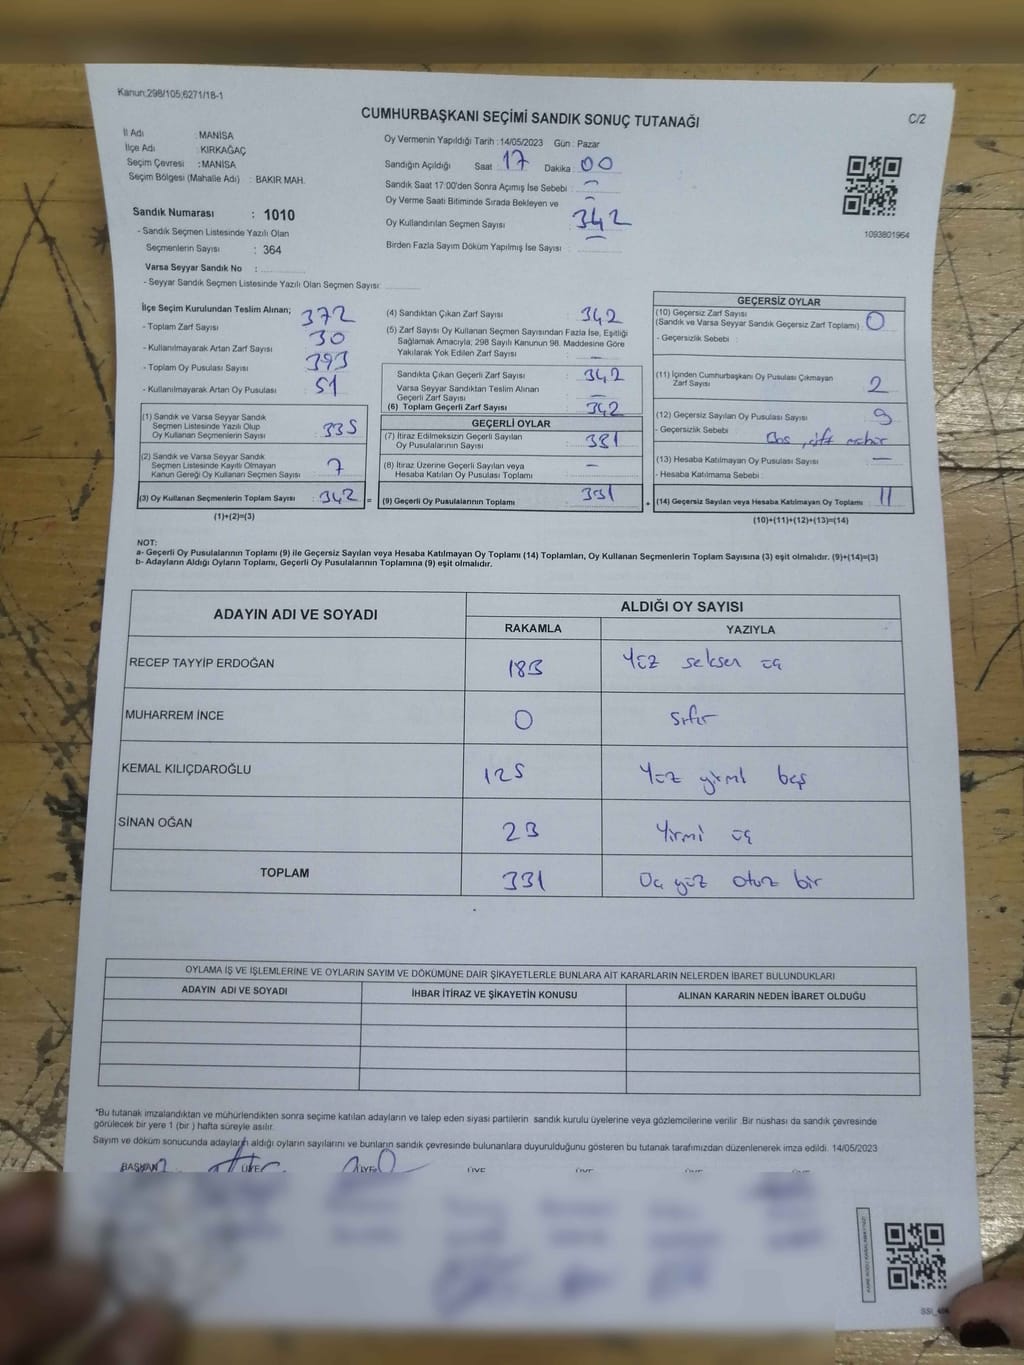 Kanun;298/105;6271/18-1
CUMHURBAŞKANI SEÇİMİ SANDIK SONUÇ TUTANAĞI
C/2
İl Adı : MANİSA
İlçe Adı : KIRKAĞAÇ
Seçim Çevresi : MANİSA
Seçim Bölgesi (Mahalle Adı) : BAKIR MAH.
Sandık Numarası : 1010
- Sandık Seçmen Listesinde Yazılı Olan
Seçmenlerin Sayısı : 364
Varsa Seyyar Sandık No :
- Seyyar Sandık Seçmen Listesinde Yazılı Olan Seçmen Sayısı:
Oy Vermenin Yapıldığı Tarih : 14/05/2023 Gün : Pazar
Sandığın Açıldığı Saat : 17 Dakika : 00
Sandık Saat 17:00'den Sonra Açımış İse Sebebi : -
Oy Verme Saati Bitiminde Sırada Bekleyen ve -
Oy Kullandırılan Seçmen Sayısı : 342
Birden Fazla Sayım Döküm Yapılmış İse Sayısı : -
1093801964
İlçe Seçim Kurulundan Teslim Alınan;
- Toplam Zarf Sayısı : 372
- Kullanılmayarak Artan Zarf Sayısı : 30
- Toplam Oy Pusulası Sayısı : 393
- Kullanılmayarak Artan Oy Pusulası : 51
(1) Sandık ve Varsa Seyyar Sandık
Seçmen Listesinde Yazılı Olup
Oy Kullanan Seçmenlerin Sayısı : 335
(2) Sandık ve Varsa Seyyar Sandık
Seçmen Listesinde Kayıtlı Olmayan
Kanun Gereği Oy Kullanan Seçmen Sayısı : 7
(3) Oy Kullanan Seçmenlerin Toplam Sayısı : 342 =
(1)+(2)=(3)
(4) Sandıktan Çıkan Zarf Sayısı : 342
(5) Zarf Sayısı Oy Kullanan Seçmen Sayısından Fazla İse, Eşitliği
Sağlamak Amacıyla; 298 Sayılı Kanunun 98. Maddesine Göre
Yakılarak Yok Edilen Zarf Sayısı : -
Sandıkta Çıkan Geçerli Zarf Sayısı : 342
Varsa Seyyar Sandıktan Teslim Alınan
Geçerli Zarf Sayısı : -
(6) Toplam Geçerli Zarf Sayısı : 342
GEÇERLİ OYLAR
(7) İtiraz Edilmeksizin Geçerli Sayılan
Oy Pusulalarının Sayısı : 331
(8) İtiraz Üzerine Geçerli Sayılan veya
Hesaba Katılan Oy Pusulası Toplamı : -
(9) Geçerli Oy Pusulalarının Toplamı : 331 +
GEÇERSİZ OYLAR
(10) Geçersiz Zarf Sayısı
(Sandık ve Varsa Seyyar Sandık Geçersiz Zarf Toplamı) : 0
- Geçersizlik Sebebi :
(11) İçinden Cumhurbaşkanı Oy Pusulası Çıkmayan
Zarf Sayısı : 2
(12) Geçersiz Sayılan Oy Pusulası Sayısı : 9
- Geçersizlik Sebebi : Bos, çift mühür
(13) Hesaba Katılmayan Oy Pusulası Sayısı : -
- Hesaba Katılmama Sebebi :
(14) Geçersiz Sayılan veya Hesaba Katılmayan Oy Toplamı : 11
(10)+(11)+(12)+(13)=(14)
NOT:
a- Geçerli Oy Pusulalarının Toplamı (9) ile Geçersiz Sayılan veya Hesaba Katılmayan Oy Toplamı (14) Toplamları, Oy Kullanan Seçmenlerin Toplam Sayısına (3) eşit olmalıdır. (9)+(14)=(3)
b- Adayların Aldığı Oyların Toplamı, Geçerli Oy Pusulalarının Toplamına (9) eşit olmalıdır.
ADAYIN ADI VE SOYADI
ALDIĞI OY SAYISI
RAKAMLA YAZIYLA
RECEP TAYYİP ERDOĞAN 183 Yüz seksen üç
MUHARREM İNCE 0 sıfır
KEMAL KILIÇDAROĞLU 125 Yüz yirmi beş
SİNAN OĞAN 23 Yirmi üç
TOPLAM 331 Üç yüz otuz bir
OYLAMA İŞ VE İŞLEMLERİNE VE OYLARIN SAYIM VE DÖKÜMÜNE DAİR ŞİKAYETLERLE BUNLARA AİT KARARLARIN NELERDEN İBARET BULUNDUKLARI
ADAYIN ADI VE SOYADI İHBAR İTİRAZ VE ŞİKAYETİN KONUSU ALINAN KARARIN NEDEN İBARET OLDUĞU
*Bu tutanak imzalandıktan ve mühürlendikten sonra seçime katılan adayların ve talep eden siyasi partilerin sandık kurulu üyelerine veya gözlemcilerine verilir .Bir nüshası da sandık çevresinde
görülecek bir yere 1 (bir ) hafta süreyle asılır.
Sayım ve döküm sonucunda adayların aldığı oyların sayılarını ve bunların sandık çevresinde bulunanlara duyurulduğunu gösteren bu tutanak tarafımızdan düzenlenerek imza edildi. 14/05/2023
BAŞKAN ÜYE ÜYE ÜYE